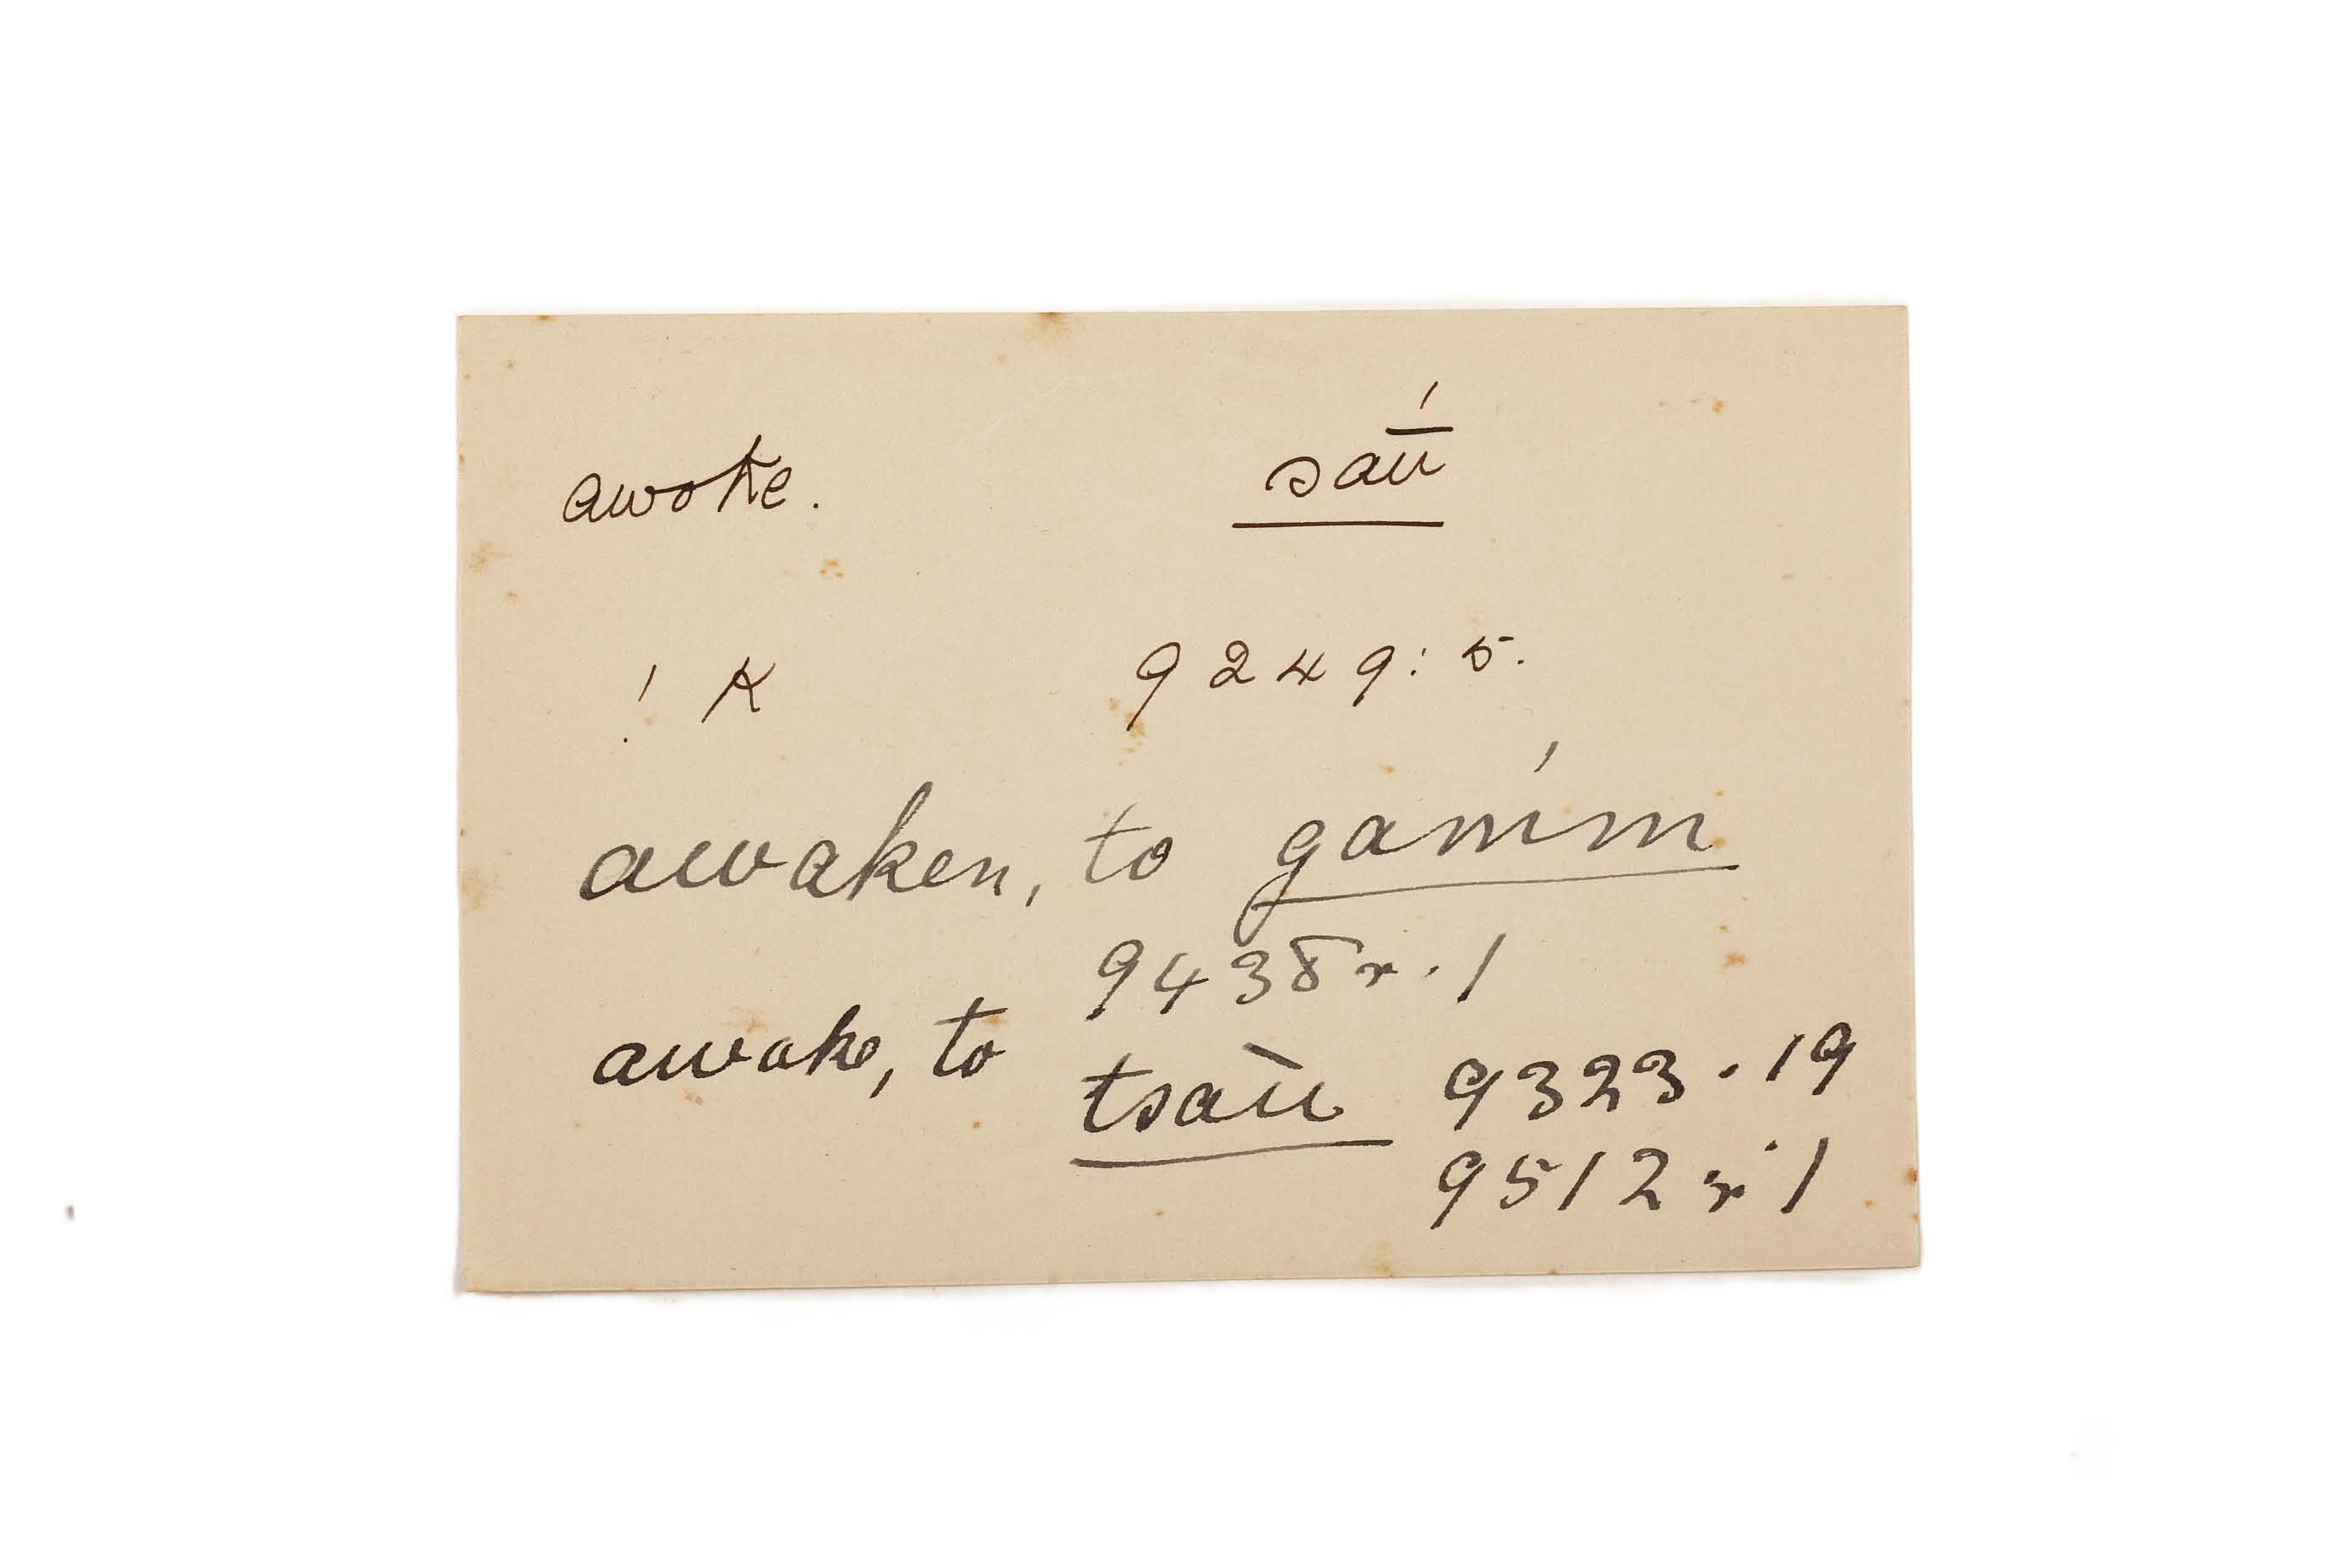 awoke. saū́
! K 9249:5.
awaken, to gamḿ
9438r.1
awake, to tsaū 9323.19
9512r.1